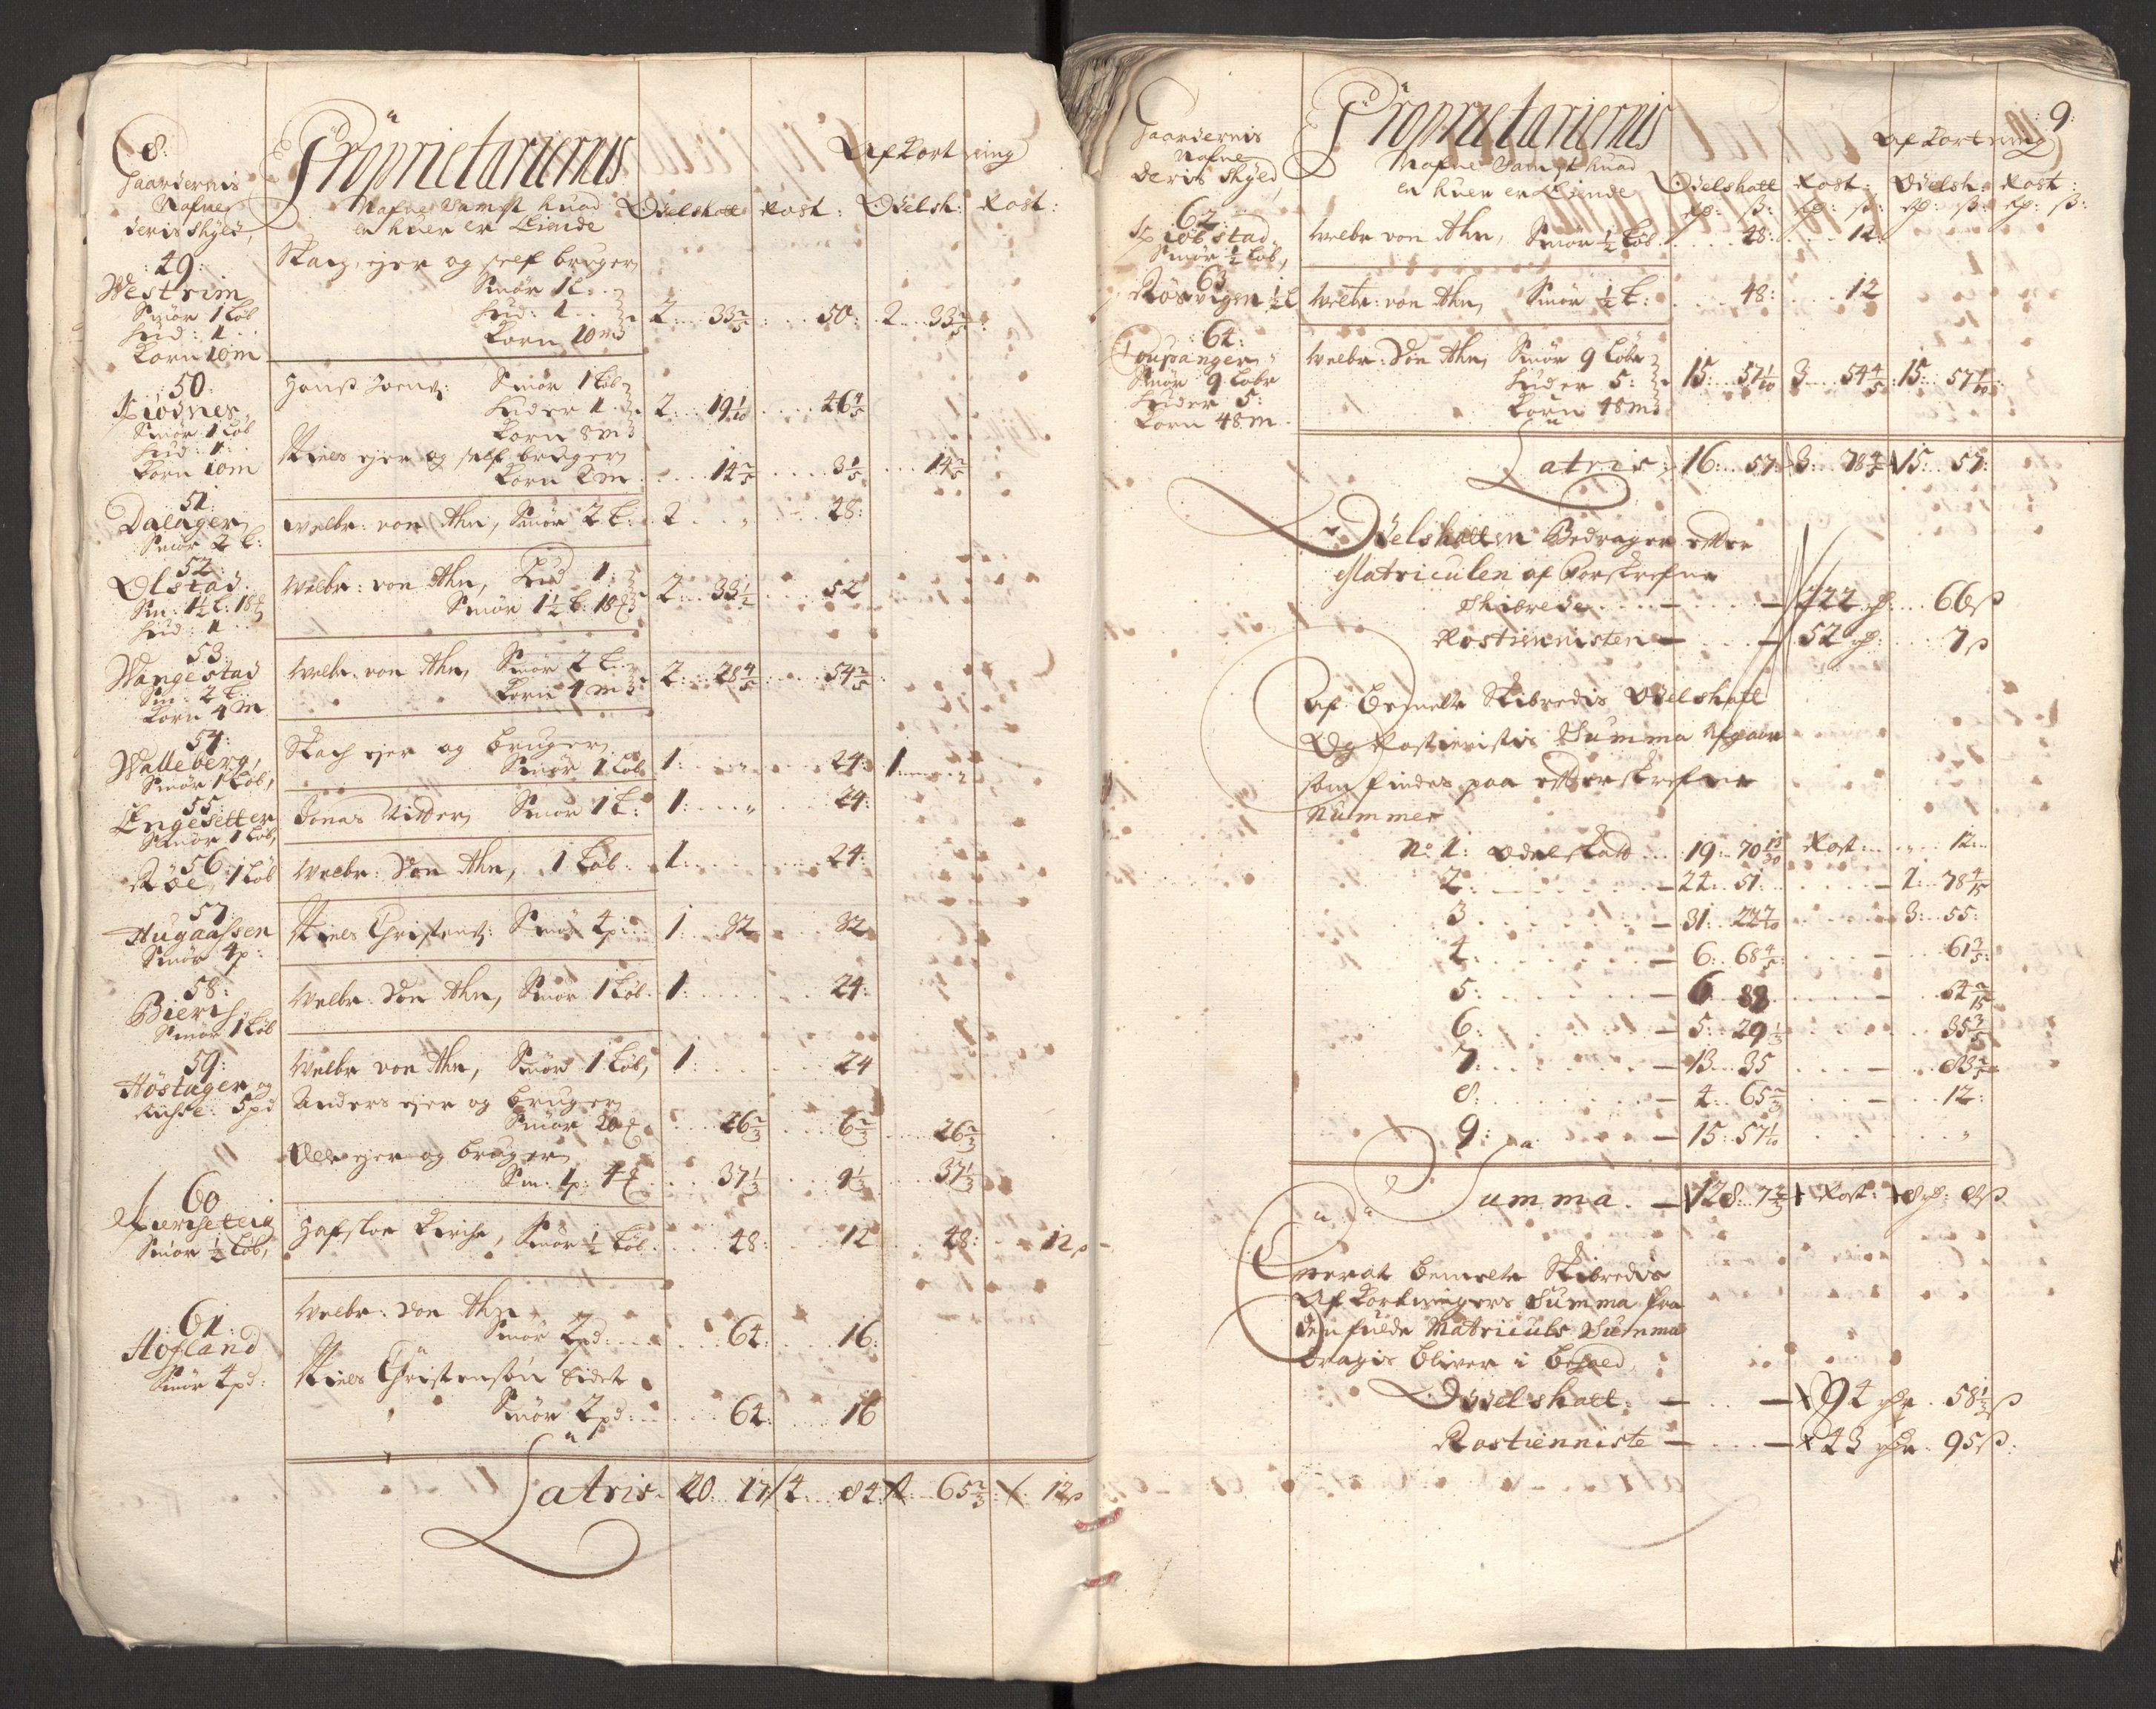 8:
Gaardernis
Nafne
deris Skyld,
Proprietariernis
Nafne Sampt huad
en huer er Eiende
Odelskatt Rost:
Afkortning
Odelsk: Rost:
49:
Westrim
Smør 1 Løb
Hud: 1
Korn 10 m
Skag, ejer og self bruger
Smør 1 L
Hud: 1
Korn 10 m
2: 33 2/5 50: 2 33 2/5
50:
Kiødnes
Smør 1 Løb
Hud: 1
Korn 10 m
Hanss Joens: Smør 1 Løb
Huder 1
Korn 8 m
2 19 1/10 46 4/5
Niels ejer og self bruger
Korn 2 m 14 2/5 3 1/5 14 2/5
51:
Dalager
Smør 2 L:
Welbr: von Ahn, Smør 2 L: 2 „ 48:
52:
Olstad
Sm: 1 1/2 L: 18
Hud: 1
Welbr: von Ahn, Hud 1:
Smør 1 1/2 L: 18
2: 33 1/2 52
53:
Wangestad
Sm: 2 L:
Korn 4 m
Welbr. von Ahn, Smør 2 L
Korn 4 m
2: 28 4/5 54 2/5
54:
Walleberg,
Smør 1 Løb,
Skach ejer og bruger
Smør 1 Løb 1: „ 24: 1 „
55:
Engesetter
Smør 1 Løb,
Jonas Nitter Smør 1 L: 1: „ 24:
56:
Røe, 1 Løb
Welbr: Von Ahn, 1 Løb 1: 24:
57:
Hugaassen
Smør 4 p:
Niels Christens: Smør 4 p: 1: 32 32
58:
Bierch
Smør 1 Løb
Welbr: Von Ahn, Smør 1 Løb. 1: 24:
59:
Høstager og
5 pd
Welbr von Ahn, Smør 1 Løb, 1: 24
Anders ejer og bruger
Smør 20 26 2/3 6 2/3 26 2/3
Olle ejer og bruger
Sm: 1 p: 4 37 1/3 9 1/3 37 1/3
60
Kircheteig
Smør 1/2 Løb,
Hafsloe Kirche, Smør 1/2 Løb. 48: 12 48: 12 s
61:
Hofland
Smør 4 pd:
Welbr: von Ahn
Smør 2 pd: 64: 16:
Niels Christensøn sidste
Smør 2 pd: 64: 16
Latris 20 17 4 84 4 65 2/3 12 s
9:
Gaardernis
Nafne
deris Skyld,
Proprietariernis
Nafne Sampt huad
en huer er Eiende
Odelskatt Rost:
Afkortning
Odelsk: Rost:
rd: s: rd: s: rd: s: rd: s:
62:
Kiobstad
Smør 1/2 Løb,
Welbr von Ahn, Smør 1/2 Løb 48: 12:
63
Røsvigen 1/2 L
Welbr: von Ahn, Smør 1/2 L: 48: 12
64:
Soupanger
Smør 9 Løbe
Huder 5:
Korn 48 m
Welbr: Von Ahn Smør 9 Løbe
Huder 5:
Korn 48 m
15: 57 1/10 3 54 4/5 15: 57 1/10
Latris: 16: 57: 3: 78 4/5 15: 57:
Odelskatten Bedrager efter
Matriculen af Forskrefne
Skibrede 222 rd: 66 s
Rostiennisten 52 rd: 7 s
Af bemelte Skibredis Odelskatt
Og Rostienistis Summa Afgaar
som findes paa efterskrefne
Nummer
No 1: Odelskatt 19: 70 13/30 Rost: „ 12:
2: 24: 51: 1: 78 4/15
3 31: 22 7/10 3: 55:
4: 6: 68 4/5 61 2/5:
5: 6 88 64 2/15
6: 5: 29 1/3 35 3/5
7: 13 35 83 2/5
8: 4: 65 2/3 12:
9: 15: 57 1/10 „
Summa. 128: 7 2/3 Rost: 8 rd: 8 s
bemelte Skibredis
Afkortningers Summa fra
den fulde Matriculs Summa
dragis bliver i behold
Odelskatt: 94 rdr 58 1/3 s
Rostienniste 43 rdr. 95 s: